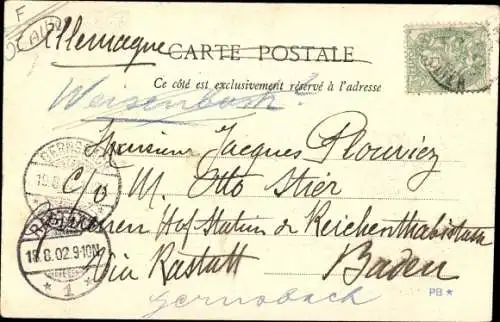 F
Allemagne
CARTE POSTALE
Ce côté est exclusivement réservé à l'adresse
Weisenbach
Monsieur Jacques Plouviez
c/o M. Otto Stier
Hof Station de Reichenthalstation
Via Rastatt Baden
Gernsbach
GERNSB
19.8
RASTATT
18.8.02.9-10N
* 1 *
PB *